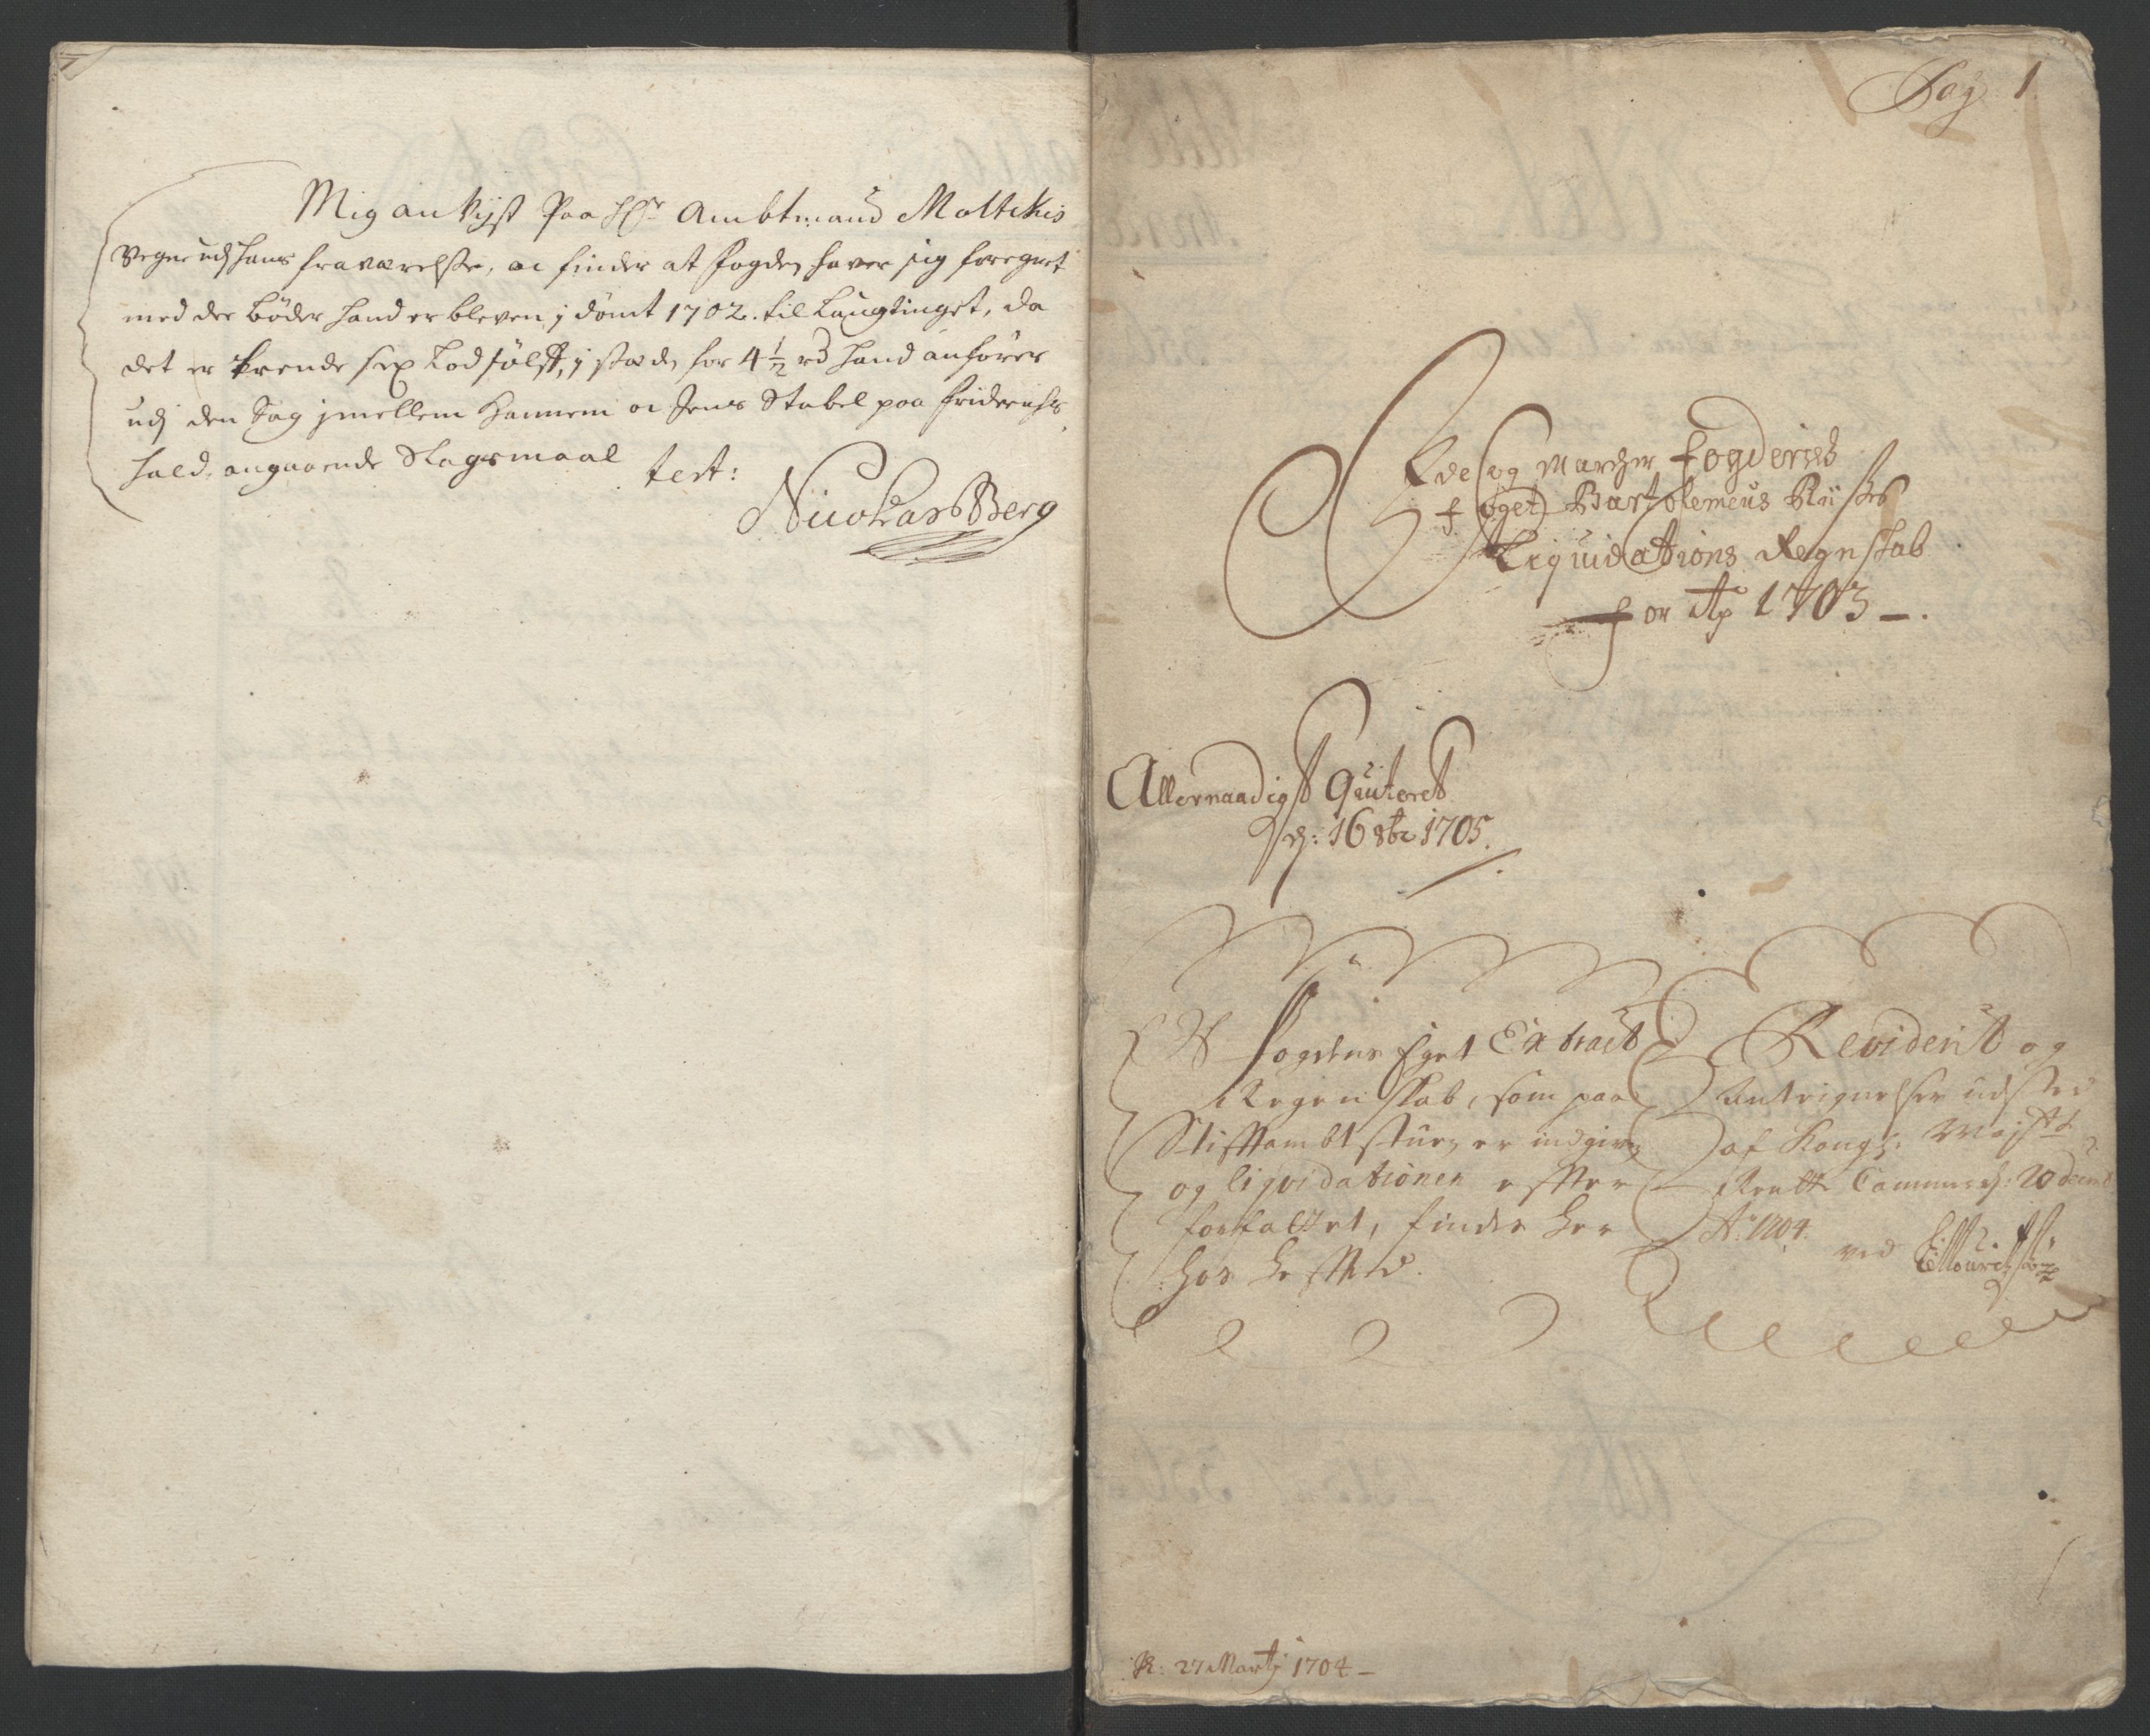 Mig anvijst Paa Hr Ambtmand Moltkes
Vegne udj hans fraværelse, oc finder at fogden haver sig foregnet
med de bøder hand er bleven j dømt 1702. til Laugtinget, da
det er trende sex Lod sølf, j stæden for 4 1/2 rd hand anfører
udj den Sag jmellem hannem oc Jens Stabel paa friderichs
hald, angaaende Slagsmaal
test:
Nicolaus Berg
Pag 1.
Ide og Marcher fogderies
foget Bartolemeus Riises
Liquidations Regnskab
for Ao 1703
Allernaadigst Quiteret
d: 16 8br 1705.
NB fogdens Eget Extract
Regenskab, som paa
Stifftambtstuen er indgiven
og liqvidationen effter
forfattet, findes her
hos heffted.
Reviderit og
Antegnelser udsted
af Kongl: Mayst
Rentte Cammer d: 20 decemb
Ao 1704.
ved
R: 27 Martj 1704